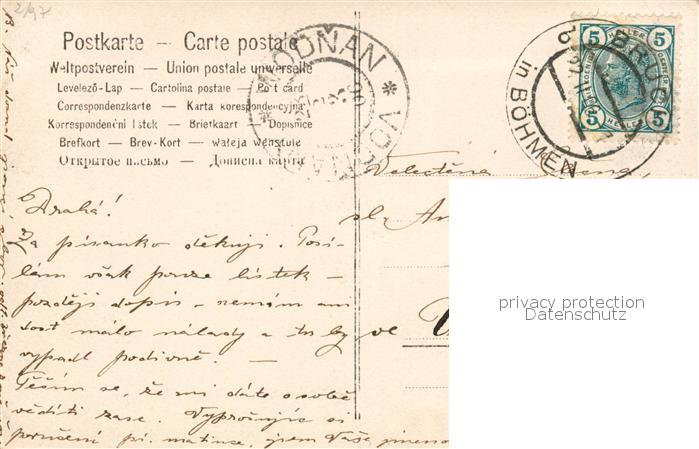 2/97
Postkarte — Carte postale
Weltpostverein — Union postale universelle
Levelező-Lap — Cartolina postale — Post card
Correspondenzkarte — Karta korespondencyjna
Korrespondenční lístek — Brietkaart — Dopisnice
Brefkort — Brev-Kort — Weteja wehstule
Открытое письмо — Дописна карта
VODŇAN * VODŇAN *
BRÜ
in BÖHMEN
5 HELLER 5
5 HELLER 5
Velectěná
sl.
ve
Drahá!
Za písanko děkuji. Posí-
lám však pouze lístek –
později dopis – nemám ani
dost málo nálady a to by
vypadl podivně. —
Těším se, že mi dáte o sobě
věděti zase. Vyprošujíc si
poručení pí. matince, jsem Vaše
privacy protection
Datenschutz